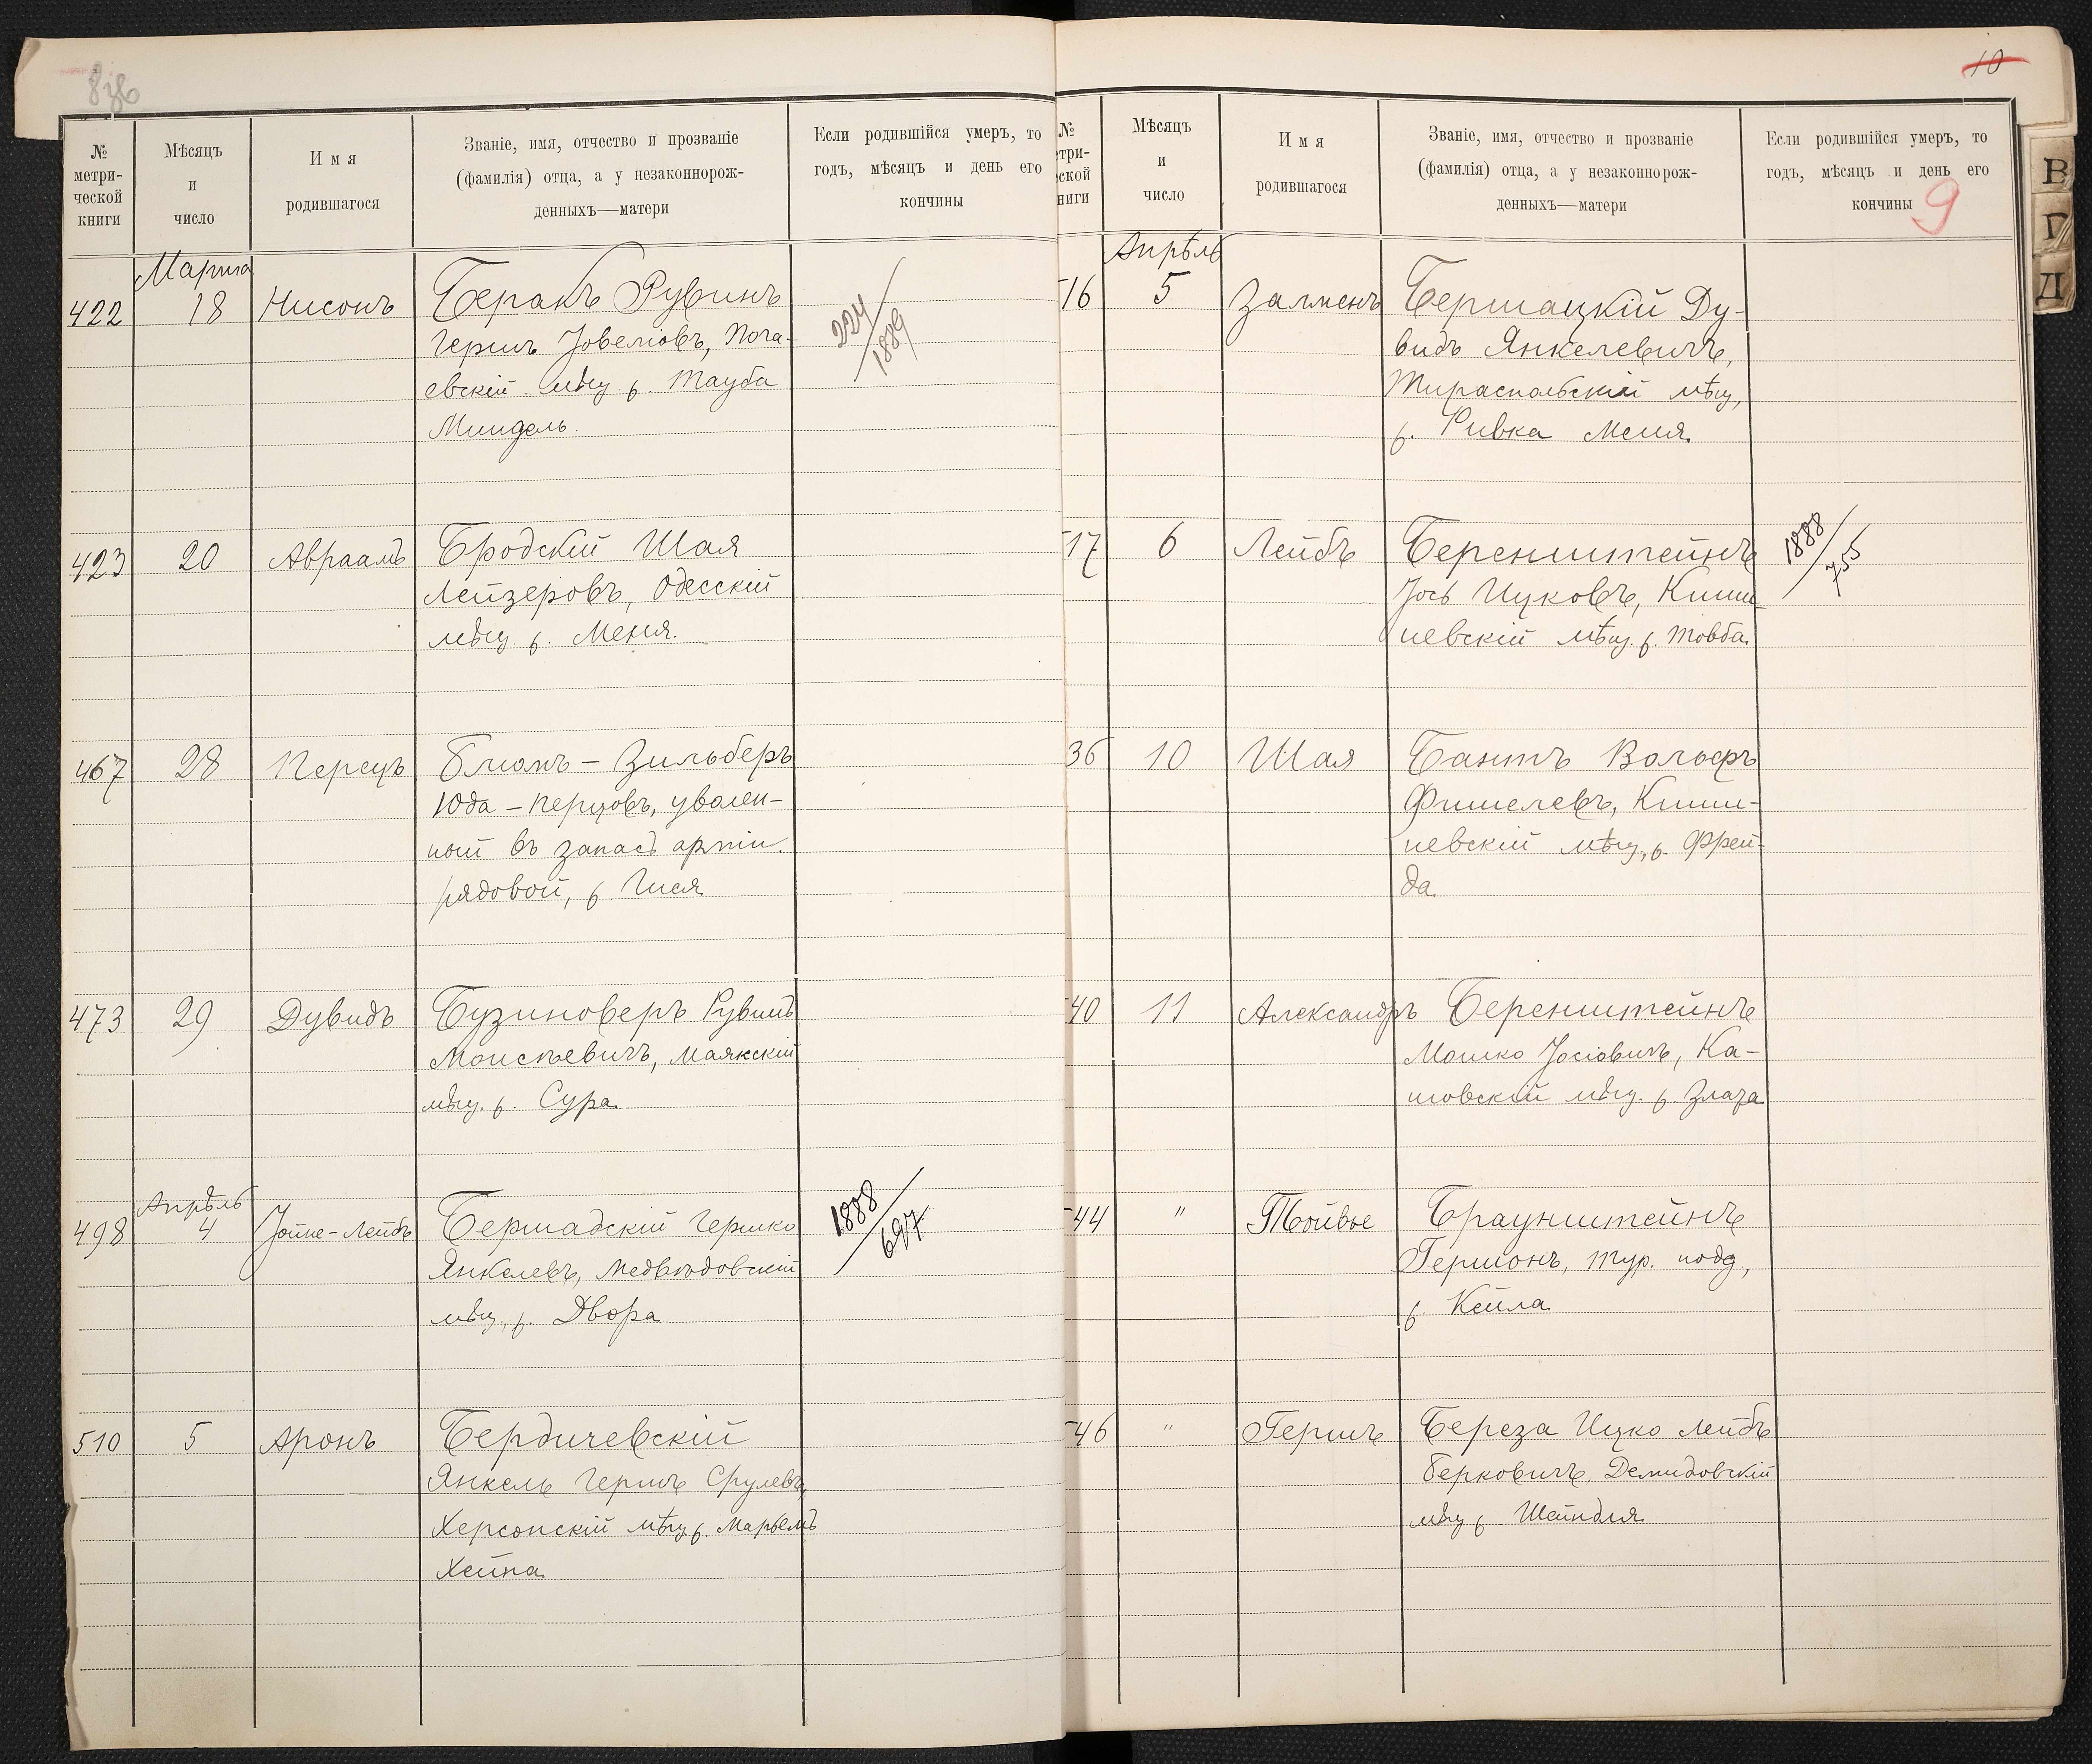 10
№
метри-
ческой
книги
Мѣсяцъ
и
число
Имя
родившагося
Званіе, имя, отчество и прозваніе
(фамилія) отца, а у незаконнорож-
денныхъ—матери
Если родившійся умеръ, то
годъ, мѣсяцъ и день его
кончины
Марта
422 18 Нисонъ Беракъ Рувинъ
Гершъ Іовеліовъ, Поча-
евскій мѣщ р. Тауба
Миндель.
224/1889
423 20 Авраамъ Бродскій Шая
Лейзеровъ, Одесскій
мѣщ р. Меня.
467 28 Перецъ Блюмъ-Зильберъ
Юда-Перцовъ, уволен-
ной въ запасъ арміи
рядовой, р. Гися
473 29 Дувидъ Бузиноверъ Рувимъ
Моисѣевичъ, Маякскій
мѣщ. р. Сура
Апрѣль
498 4 Іойне-Лейбъ Бершадскій Гершко
Янкелевъ, Медвѣдовскій
мѣщ., р. Двора
1888/697
510 5 Аронъ Бердичевскій
Янкель Гершъ Срулевъ,
Херсонскій мѣщ р. Марьемъ
Хейна
№
етри-
ской
ниги
Мѣсяцъ
и
число
Имя
родившагося
Званіе, имя, отчество и прозваніе
(фамилія) отца, а у незаконнорож-
денныхъ—матери
Если родившійся умеръ, то
годъ, мѣсяцъ и день его
кончины
9
Апрѣль
16 5 Залменъ Бершацкій Ду-
видъ Янкелевичъ,
Тираспольскій мѣщ,
р. Ривка Меня
17 6 Лейбъ Беренштейнъ
Іось Ицковъ, Киши
невскій мѣщ. р. Товба
1888/755
36 10 Шая Бантъ Вольфъ
Фишелевъ, Киши-
невскій мѣщ, р. Фрей-
да
40 11 Александръ Беренштейнъ
Мошко Іосіовичъ, Ка-
новскій мѣщ. р. Злата
44 " Тойвье Браунштейнъ
Гершонъ, тур. подд,
р. Кейла
46 " Гершъ Береза Ицко Лейбъ
Берковичъ, Демидовскій
мѣщ р. Шейндля
В
Г
Д